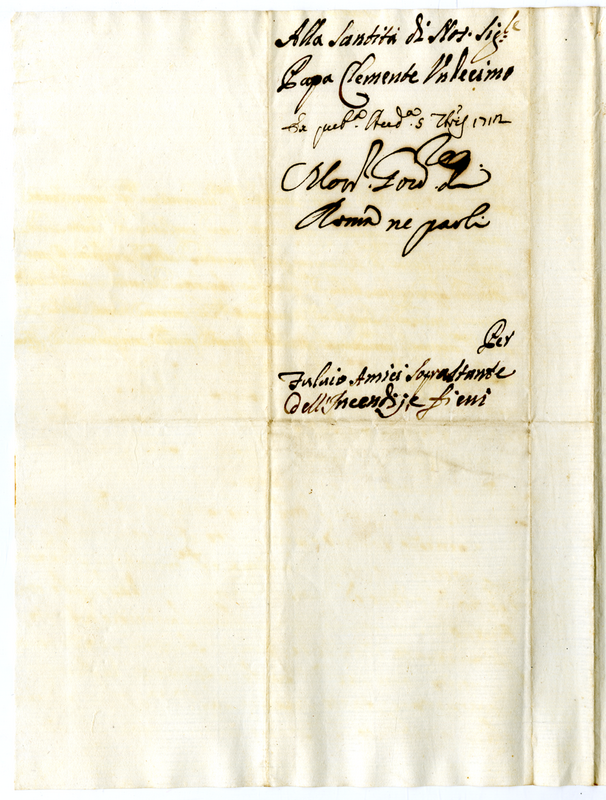 Alla Santità di Nos. Sig.re
Papa Clemente Undecimo
pub.ca Aud.a 5 1712
Mons. Gov. di
Roma ne parli
Per
Fulvio Amici Soprastante
dell'Incendij e fieni